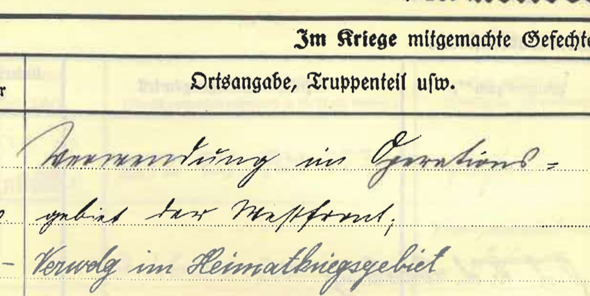 Im Kriege mitgemachte Gefechte
Ortsangabe, Truppenteil usw.
r
Verwendung im Operations=
gebiet der Westfront;
– Verwdg im Heimatkriegsgebiet